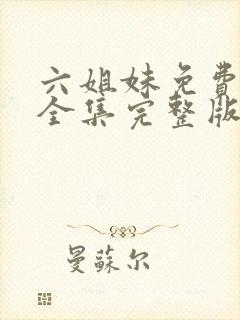 六姐妹免费
全集完整版
曼蘇尔